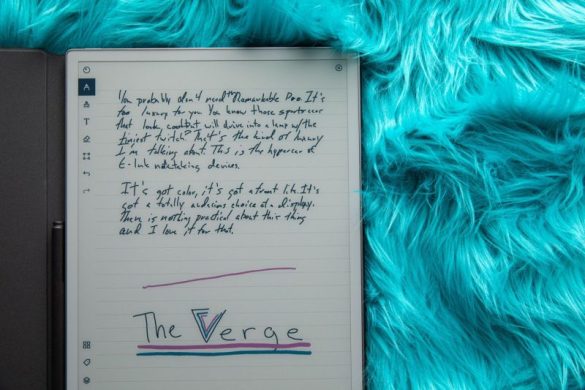 You probably don't need the Remarkable Pro. It's
too luxury for you. You know those sports car
that look cool but will drive into a
tiniest twitch? That's the kind of luxury
I'm talking about. This is the hypercar of
E-Ink notetaking devices.
It's got color, it's got a front lite. It's
got a totally audacious choice of a display.
There is nothing practical about this thing
and I love it for that.
The Verge